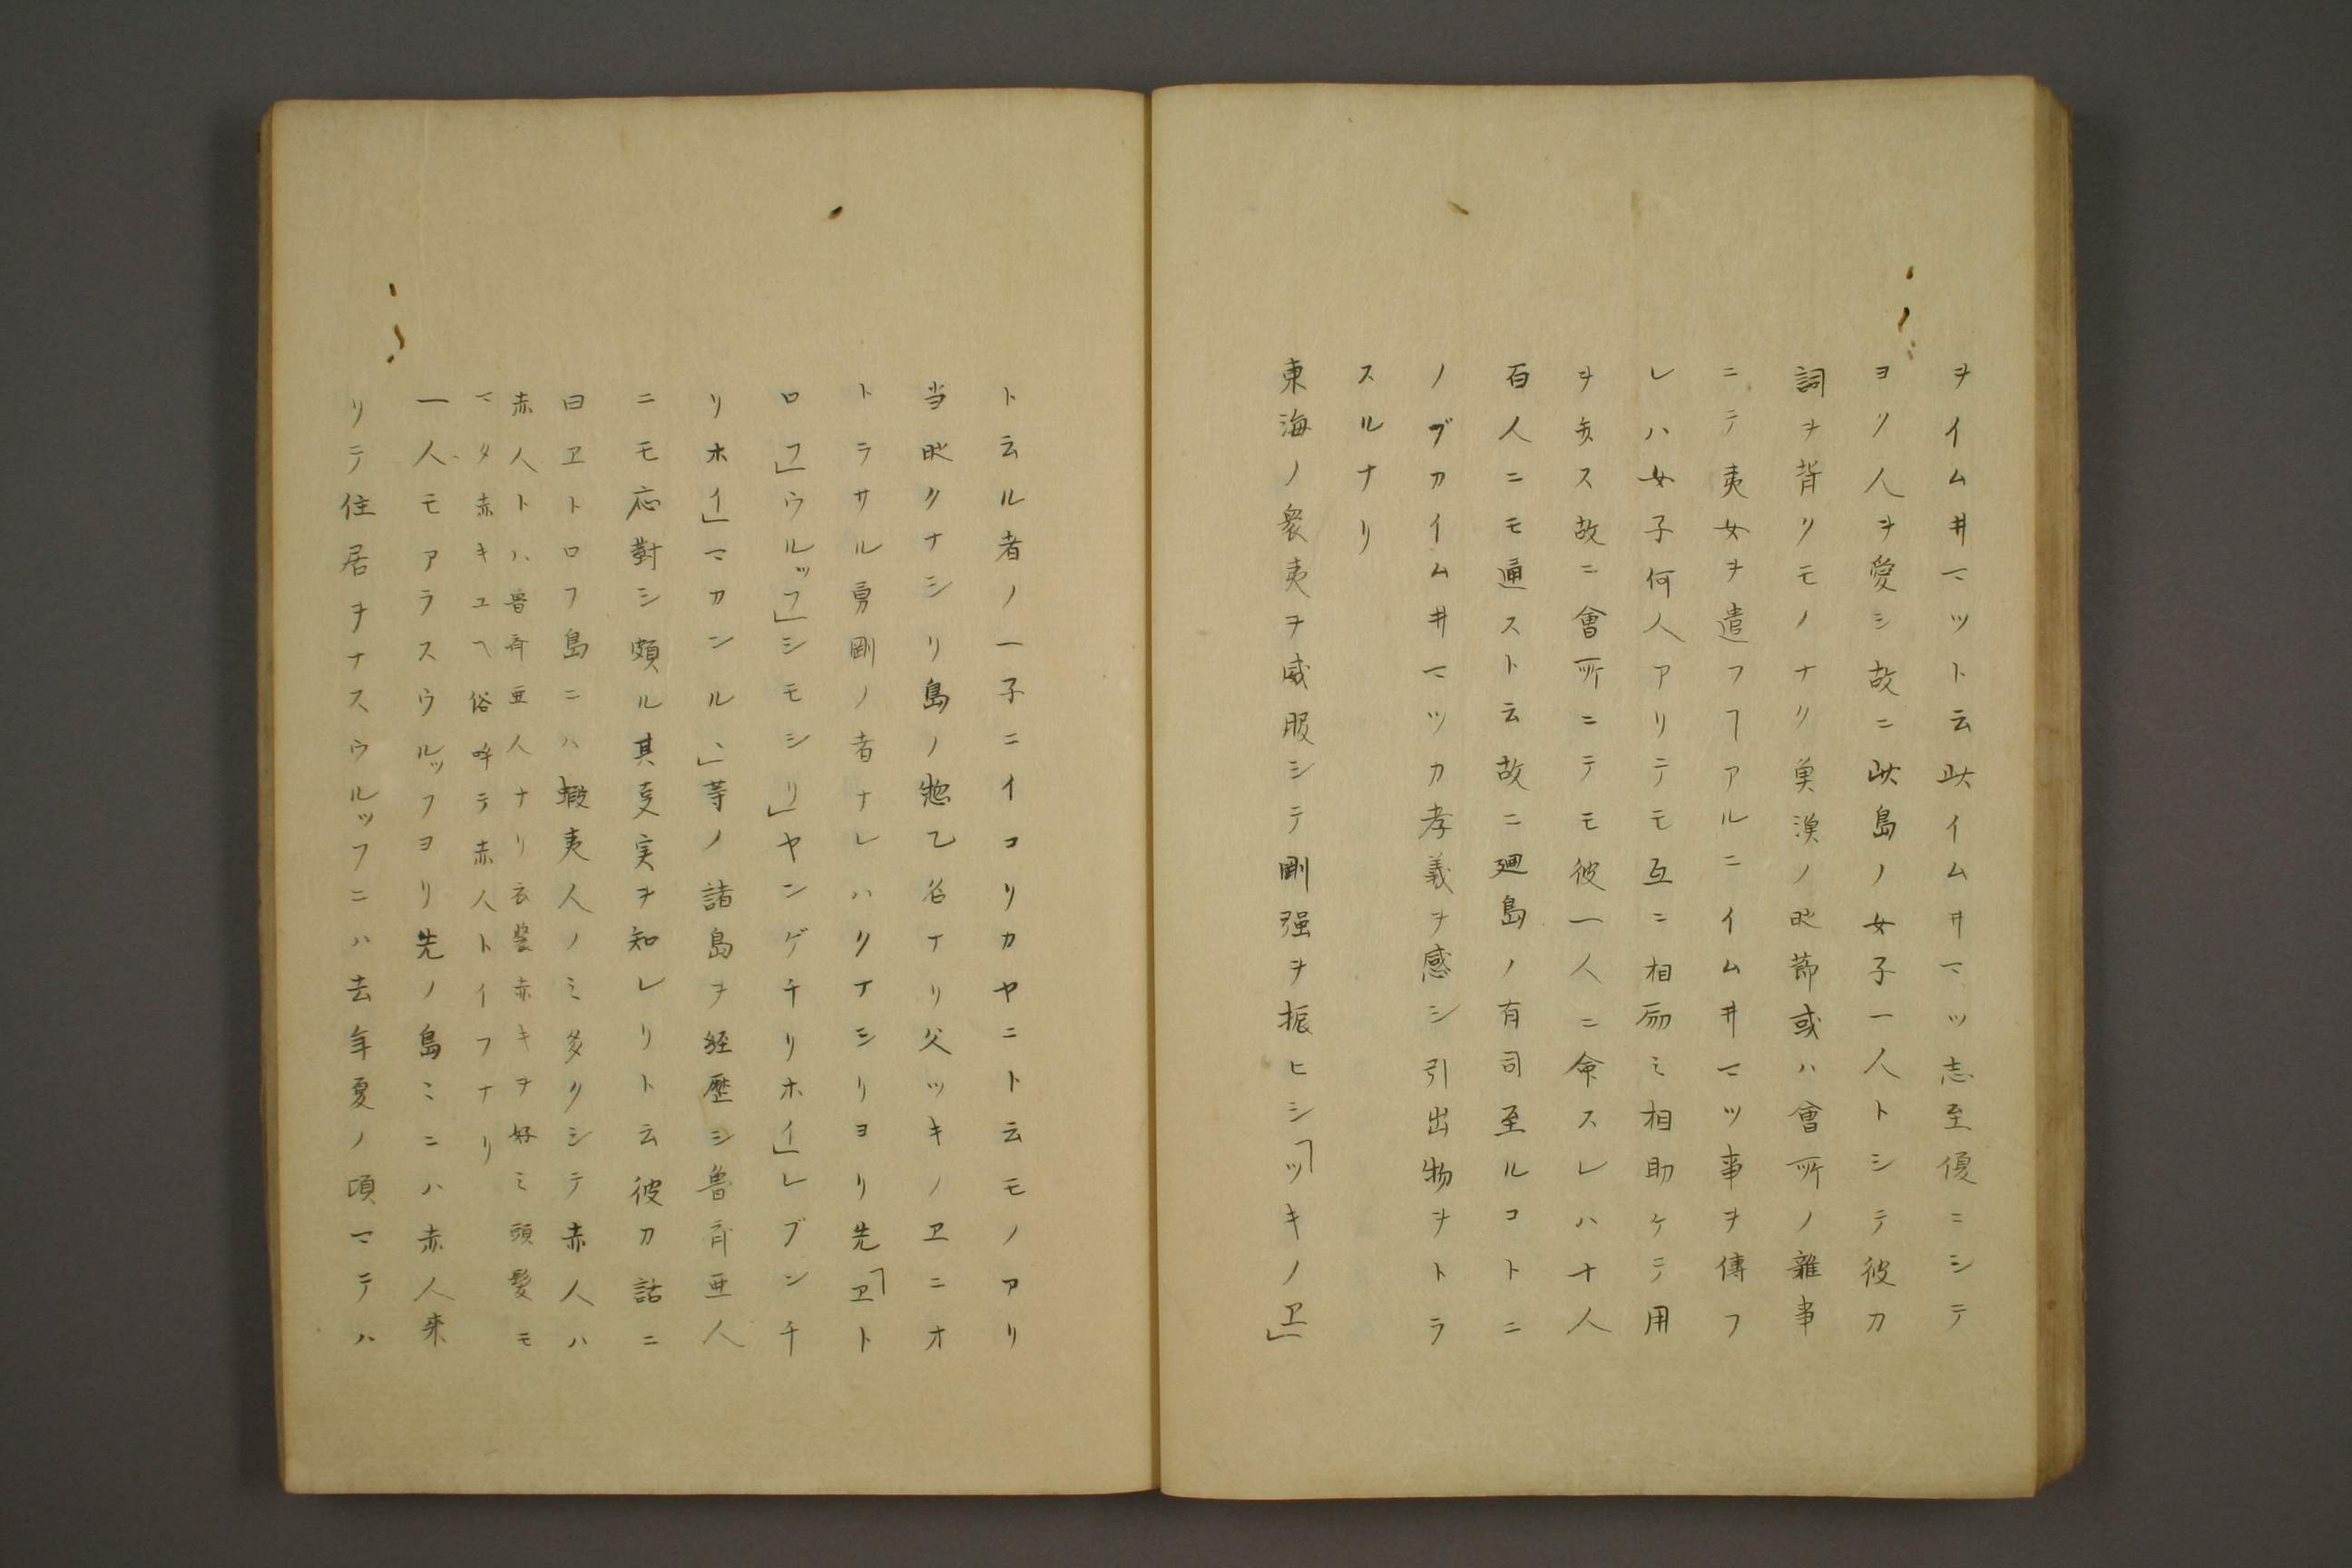 ヲイムヰマツト云此イムヰマツ志至優ニシテ
ヨク人ヲ愛シ故ニ此島ノ女子一人トシテ彼カ
詞ヲ背クモノナク巣漁ノ時節或ハ會所ノ雑事
ニテ夷女ヲ遣フヿアルニイムヰマツ事ヲ傳フ
レハ女子何人アリテモ互ニ相励ミ相助ケテ用
ヲ弁ス故ニ會所ニテモ彼一人ニ命スレハ十人
百人ニモ通スト云故ニ廻島ノ有司至ルコトニ
ノブカイムヰマツカ孝義ヲ感シ引出物ヲトラ
スルナリ
東海ノ衆夷ヲ威服シテ剛强ヲ振ヒシ「ツキノヱ」
ト云ル者ノ一子ニイコリカヤニト云モノアリ
当時クナシリ島ノ惣乙名ナリ父ツキノヱニオ
トラサル勇剛ノ者ナレハクナシリヨリ先「ヱト
ロフ」ウルップ」シモシリ」ヤンゲチリホイ」レブンチ
リホイ」マカンルヽ」等ノ諸島ヲ経歴シ魯斉亜人
ニモ応對シ頗ル其叓実ヲ知レリト云彼カ話ニ
曰ヱトロフ島ニハ蝦夷人ノミ多クシテ赤人ハ
赤人トハ魯斉亜人ナリ衣裳赤キヲ好ミ頭髪モ
マタ赤キユヘ俗呼テ赤人トイフナリ
一人モアラスウルップヨリ先ノ島ミニハ赤人来
リテ住居ヲナスウルップニハ去年夏ノ頃マテハ